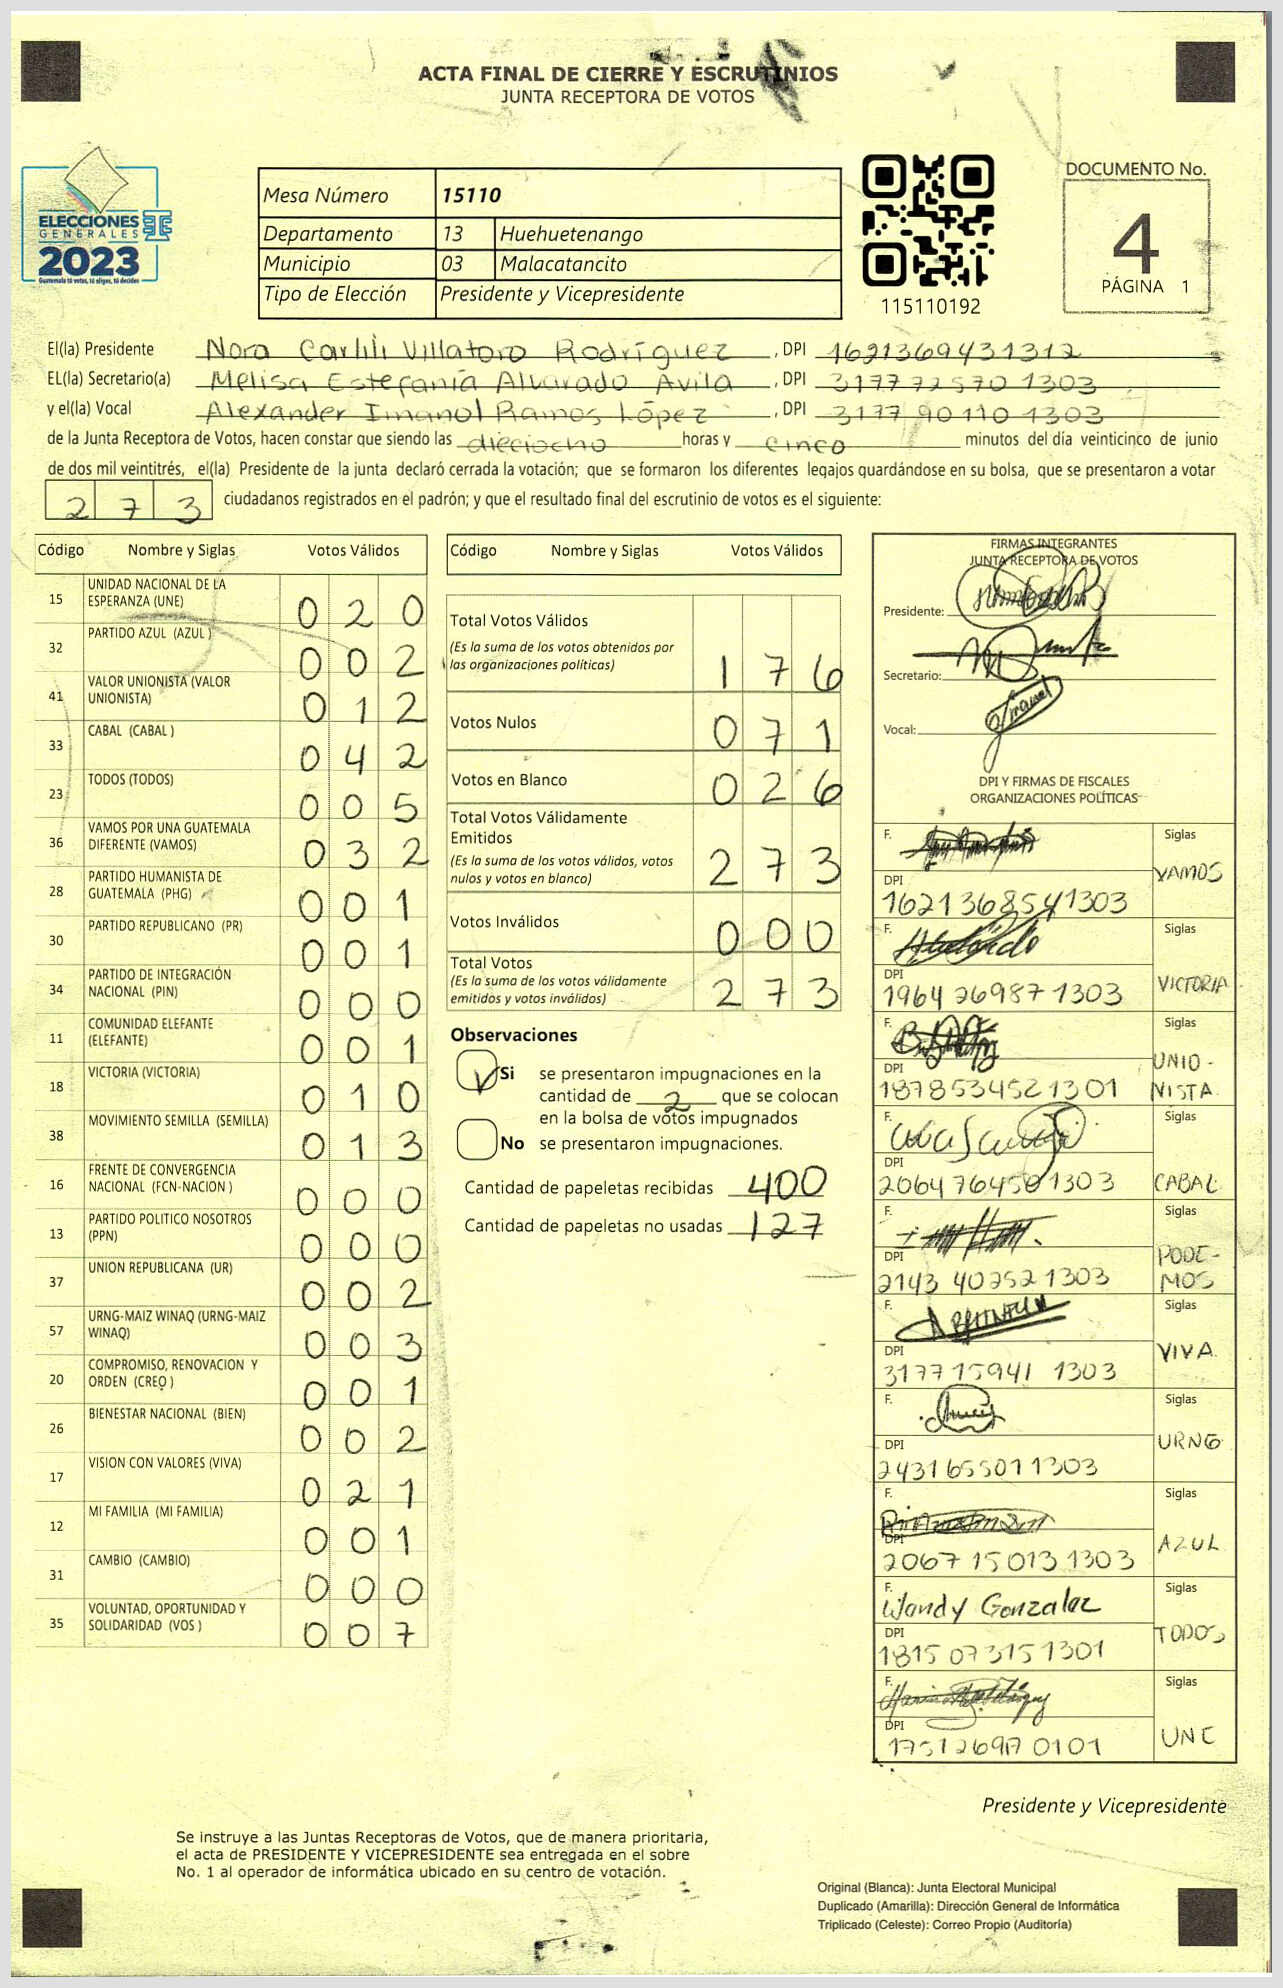 ACTA FINAL DE CIERRE Y ESCRUTINIOS
JUNTA RECEPTORA DE VOTOS
ELECCIONES
GENERALES
2023
Guatemala tú votas, tú eliges, tú decides
Mesa Número 15110
Departamento 13 Huehuetenango
Municipio 03 Malacatancito
Tipo de Elección Presidente y Vicepresidente
115110192
DOCUMENTO No.
4
PÁGINA 1
El(la) Presidente Nora Villatoro Rodríguez , DPI 1621369431312
EL(la) Secretario(a) Melisa Estefanía Alvarado Avila , DPI 3177 72570 1303
y el(la) Vocal Alexander Imanol Ramos López , DPI 3177 90110 1303
de la Junta Receptora de Votos, hacen constar que siendo las dieciocho horas y cinco minutos del día veinticinco de junio
de dos mil veintitrés, el(la) Presidente de la junta declaró cerrada la votación; que se formaron los diferentes legajos quardándose en su bolsa, que se presentaron a votar
2 7 3 ciudadanos registrados en el padrón; y que el resultado final del escrutinio de votos es el siguiente:
Código Nombre y Siglas Votos Válidos
15 UNIDAD NACIONAL DE LA
ESPERANZA (UNE) 0 2 0
32 PARTIDO AZUL (AZUL ) 0 0 2
41 VALOR UNIONISTA (VALOR
UNIONISTA) 0 1 2
33 CABAL (CABAL ) 0 4 2
23 TODOS (TODOS) 0 0 5
36 VAMOS POR UNA GUATEMALA
DIFERENTE (VAMOS) 0 3 2
28 PARTIDO HUMANISTA DE
GUATEMALA (PHG) 0 0 1
30 PARTIDO REPUBLICANO (PR) 0 0 1
34 PARTIDO DE INTEGRACIÓN
NACIONAL (PIN) 0 0 0
11 COMUNIDAD ELEFANTE
(ELEFANTE) 0 0 1
18 VICTORIA (VICTORIA) 0 1 0
38 MOVIMIENTO SEMILLA (SEMILLA) 0 1 3
16 FRENTE DE CONVERGENCIA
NACIONAL (FCN-NACION ) 0 0 0
13 PARTIDO POLITICO NOSOTROS
(PPN) 0 0 0
37 UNION REPUBLICANA (UR) 0 0 2
57 URNG-MAIZ WINAQ (URNG-MAIZ
WINAQ) 0 0 3
20 COMPROMISO, RENOVACION Y
ORDEN (CREO ) 0 0 1
26 BIENESTAR NACIONAL (BIEN) 0 0 2
17 VISION CON VALORES (VIVA) 0 2 1
12 MI FAMILIA (MI FAMILIA) 0 0 1
31 CAMBIO (CAMBIO) 0 0 0
35 VOLUNTAD, OPORTUNIDAD Y
SOLIDARIDAD (VOS ) 0 0 7
Código Nombre y Siglas Votos Válidos
Total Votos Válidos
(Es la suma de los votos obtenidos por
las organizaciones políticas) 1 7 6
Votos Nulos 0 7 1
Votos en Blanco 0 2 6
Total Votos Válidamente
Emitidos
(Es la suma de los votos válidos, votos
nulos y votos en blanco) 2 7 3
Votos Inválidos 0 0 0
Total Votos
(Es la suma de los votos válidamente
emitidos y votos inválidos) 2 7 3
Observaciones
Si se presentaron impugnaciones en la
cantidad de 2 que se colocan
en la bolsa de votos impugnados
No se presentaron impugnaciones.
Cantidad de papeletas recibidas 400
Cantidad de papeletas no usadas 127
FIRMAS INTEGRANTES
JUNTA RECEPTORA DE VOTOS
Presidente:
Secretario:
Vocal:
DPI Y FIRMAS DE FISCALES
ORGANIZACIONES POLÍTICAS
F. Siglas
VAMOS
DPI
1621368541303
F. Siglas
VICTORIA
DPI
1964 26987 1303
F. Siglas
UNIO-
NISTA
DPI
1878534521301
F. Siglas
CABAL
DPI
2064764581303
F. Siglas
PODE-
MOS
DPI
2143 40252 1303
F. Siglas
VIVA
DPI
317715941 1303
F. Siglas
URNG
DPI
2431655011303
F. Siglas
AZUL
DPI
2067 15013 1303
F. Siglas
Wandy Gonzalez
TODOS
DPI
1815 07315 1301
F. Siglas
UNE
DPI
Presidente y Vicepresidente
Se instruye a las Juntas Receptoras de Votos, que de manera prioritaria,
el acta de PRESIDENTE Y VICEPRESIDENTE sea entregada en el sobre
No. 1 al operador de informática ubicado en su centro de votación.
Original (Blanca): Junta Electoral Municipal
Duplicado (Amarilla): Dirección General de Informática
Triplicado (Celeste): Correo Propio (Auditoría)